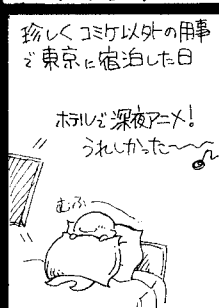 珍しくコミケ以外の用事
で東京に宿泊した日
ホテルで深夜アニメ！
うれしかった〜〜
むふ